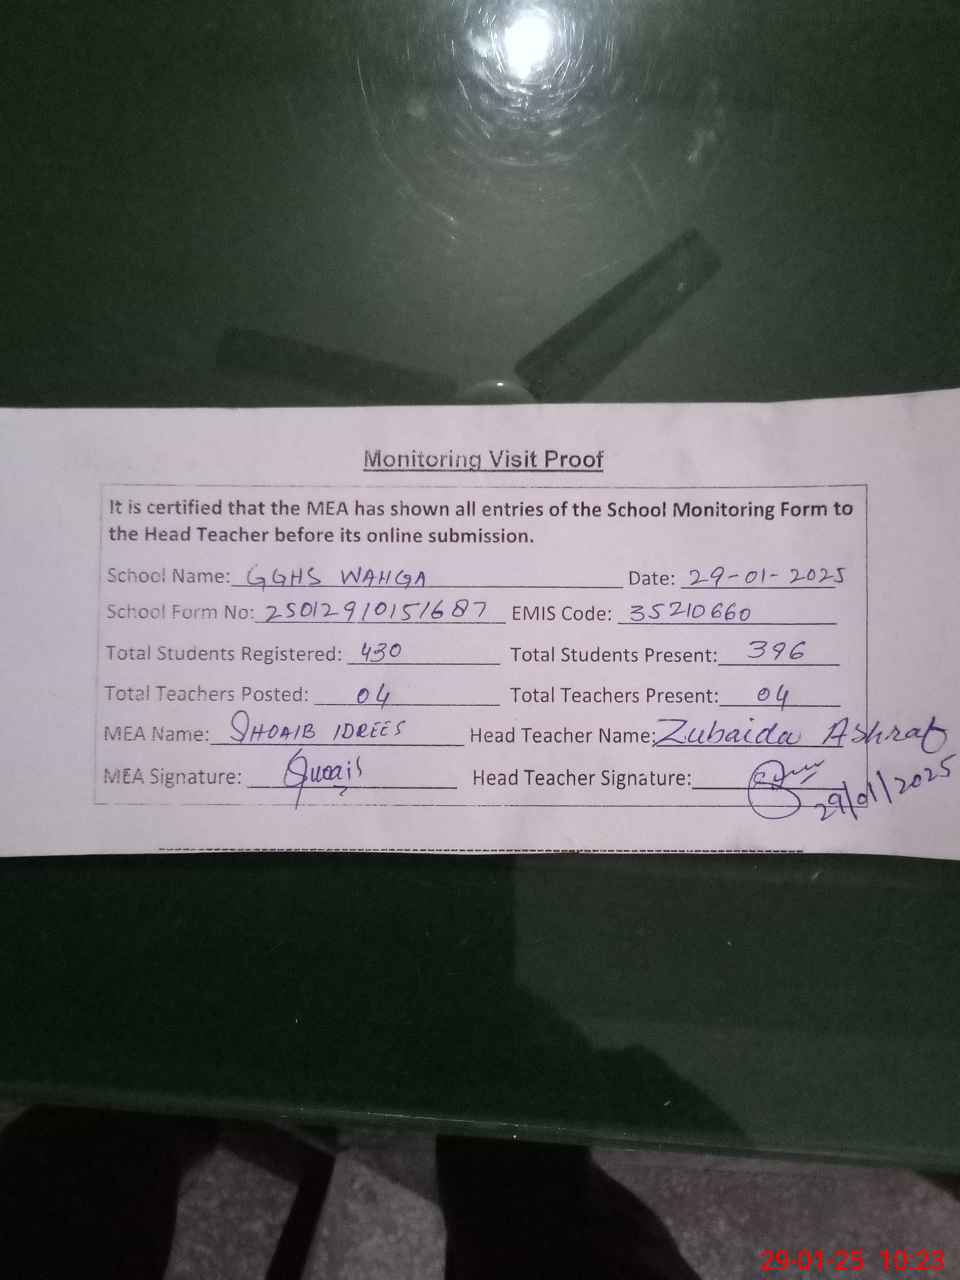 Monitoring Visit Proof
It is certified that the MEA has shown all entries of the School Monitoring Form to
the Head Teacher before its online submission.
School Name: GGHS WAHGA Date: 29-01-2025
School Form No: 25012910151687 EMIS Code: 35210660
Total Students Registered: 430 Total Students Present: 396
Total Teachers Posted: 04 Total Teachers Present: 04
MEA Name: SHOAIB IDREES Head Teacher Name: Zubaida Ashraf
MEA Signature: Head Teacher Signature:
29/01/2025
29-01-25 10:23